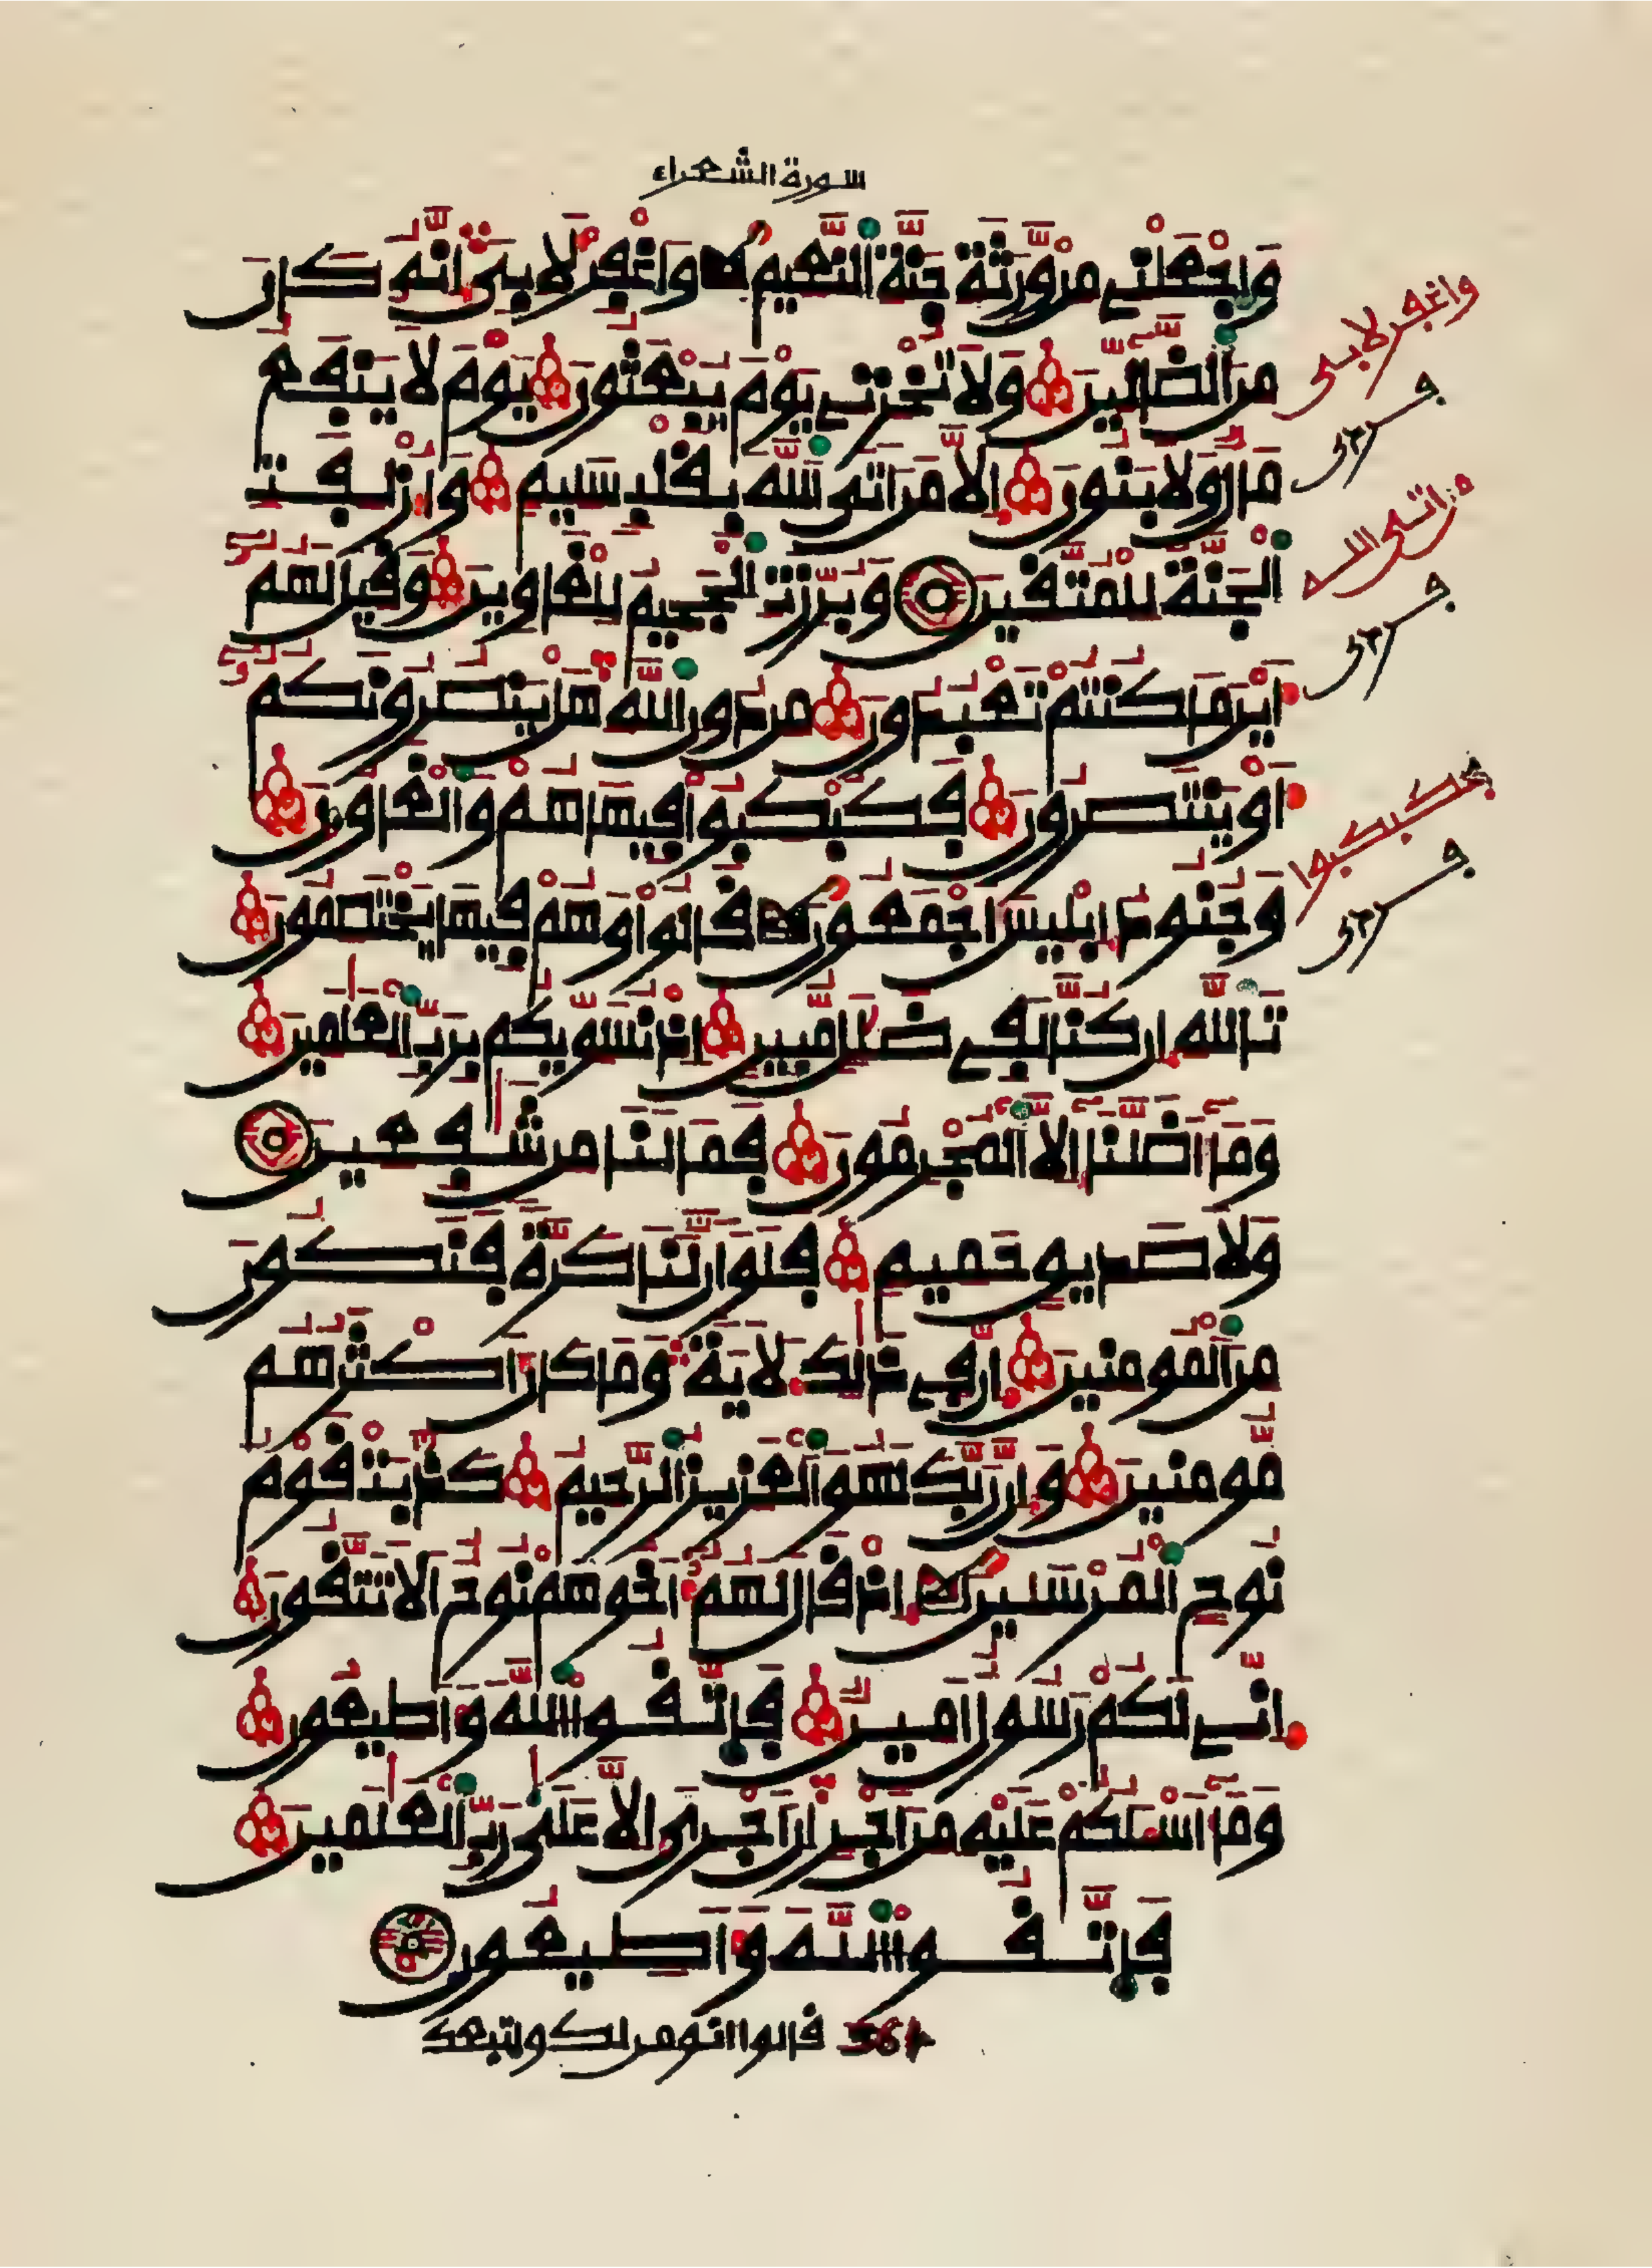 سورة الشعراء
وَاجْعَلْنِے مِنْ وَّرَثَةِ جَنَّةِ اِ۬لنَّعِيمِ وَاغْفِرْ لِأَبِيَ إِنَّهُۥ كَانَ
واغفر لأبى
مِنَ اَ۬لضَّآلِّينَ وَلَا تُخْزِنِے يَوْمَ يُبْعَثُونَ يَوْمَ لَا يَنفَعُ
مَالٌ وَلَا بَنُونَ إِلَّا مَنَ اَتَي اَ۬للَّهَ بِقَلْبٖ سَلِيمٖ وَأُزْلِفَتِ
من أتى الله
اِ۬لْجَنَّةُ لِلْمُتَّقِينَ وَبُرِّزَتِ اِ۬لْجَحِيمُ لِلْغَاوِينَ وَقِيلَ لَهُمُۥٓ
أَيْنَ مَا كُنتُمْ تَعْبُدُونَ مِن دُونِ اِ۬للَّهِ هَلْ يَنصُرُونَكُمُۥٓ
أَوْ يَنتَصِرُونَ فَكُبْكِبُواْ فِيهَا هُمْ وَالْغَاوُۥنَ
فكبكبوا
وَجُنُودُ إِبْلِيسَ أَجْمَعُونَ قَالُواْ وَهُمْ فِيهَا يَخْتَصِمُونَ
تَاللَّهِ إِن كُنَّا لَفِے ضَلَٰلٖ مُّبِينٍ إِذْ نُسَوِّيكُم بِرَبِّ اِ۬لْعَٰلَمِينَ
وَمَآ أَضَلَّنَآ إِلَّا اَ۬لْمُجْرِمُونَ فَمَا لَنَا مِن شَٰفِعِينَ
وَلَا صَدِيقٍ حَمِيمٖ فَلَوَ اَنَّ لَنَا كَرَّةٗ فَنَكُونَ
مِنَ اَ۬لْمُومِنِينَ إِنَّ فِے ذَٰلِكَ لَأٓيَةٗ وَمَا كَانَ أَكْثَرُهُم
مُّومِنِينَ وَإِنَّ رَبَّكَ لَهُوَ اَ۬لْعَزِيزُ اُ۬لرَّحِيمُ كَذَّبَتْ قَوْمُ
نُوحٍ اِ۬لْمُرْسَلِينَ إِذْ قَالَ لَهُمُۥٓ أَخُوهُمْ نُوحٌ اَلَا تَتَّقُونَ
إِنِّے لَكُمْ رَسُولٌ اَمِينٞ فَاتَّقُواْ اُ۬للَّهَ وَأَطِيعُونِ
وَمَآ أَسْـَٔلُكُمْ عَلَيْهِ مِنَ اَجْرٍ اِنَ اَجْرِيَ إِلَّا عَلَىٰ رَبِّ اِ۬لْعَٰلَمِينَ
فَاتَّقُواْ اُ۬للَّهَ وَأَطِيعُونِ
561 قالوا انومن لك واتبعك